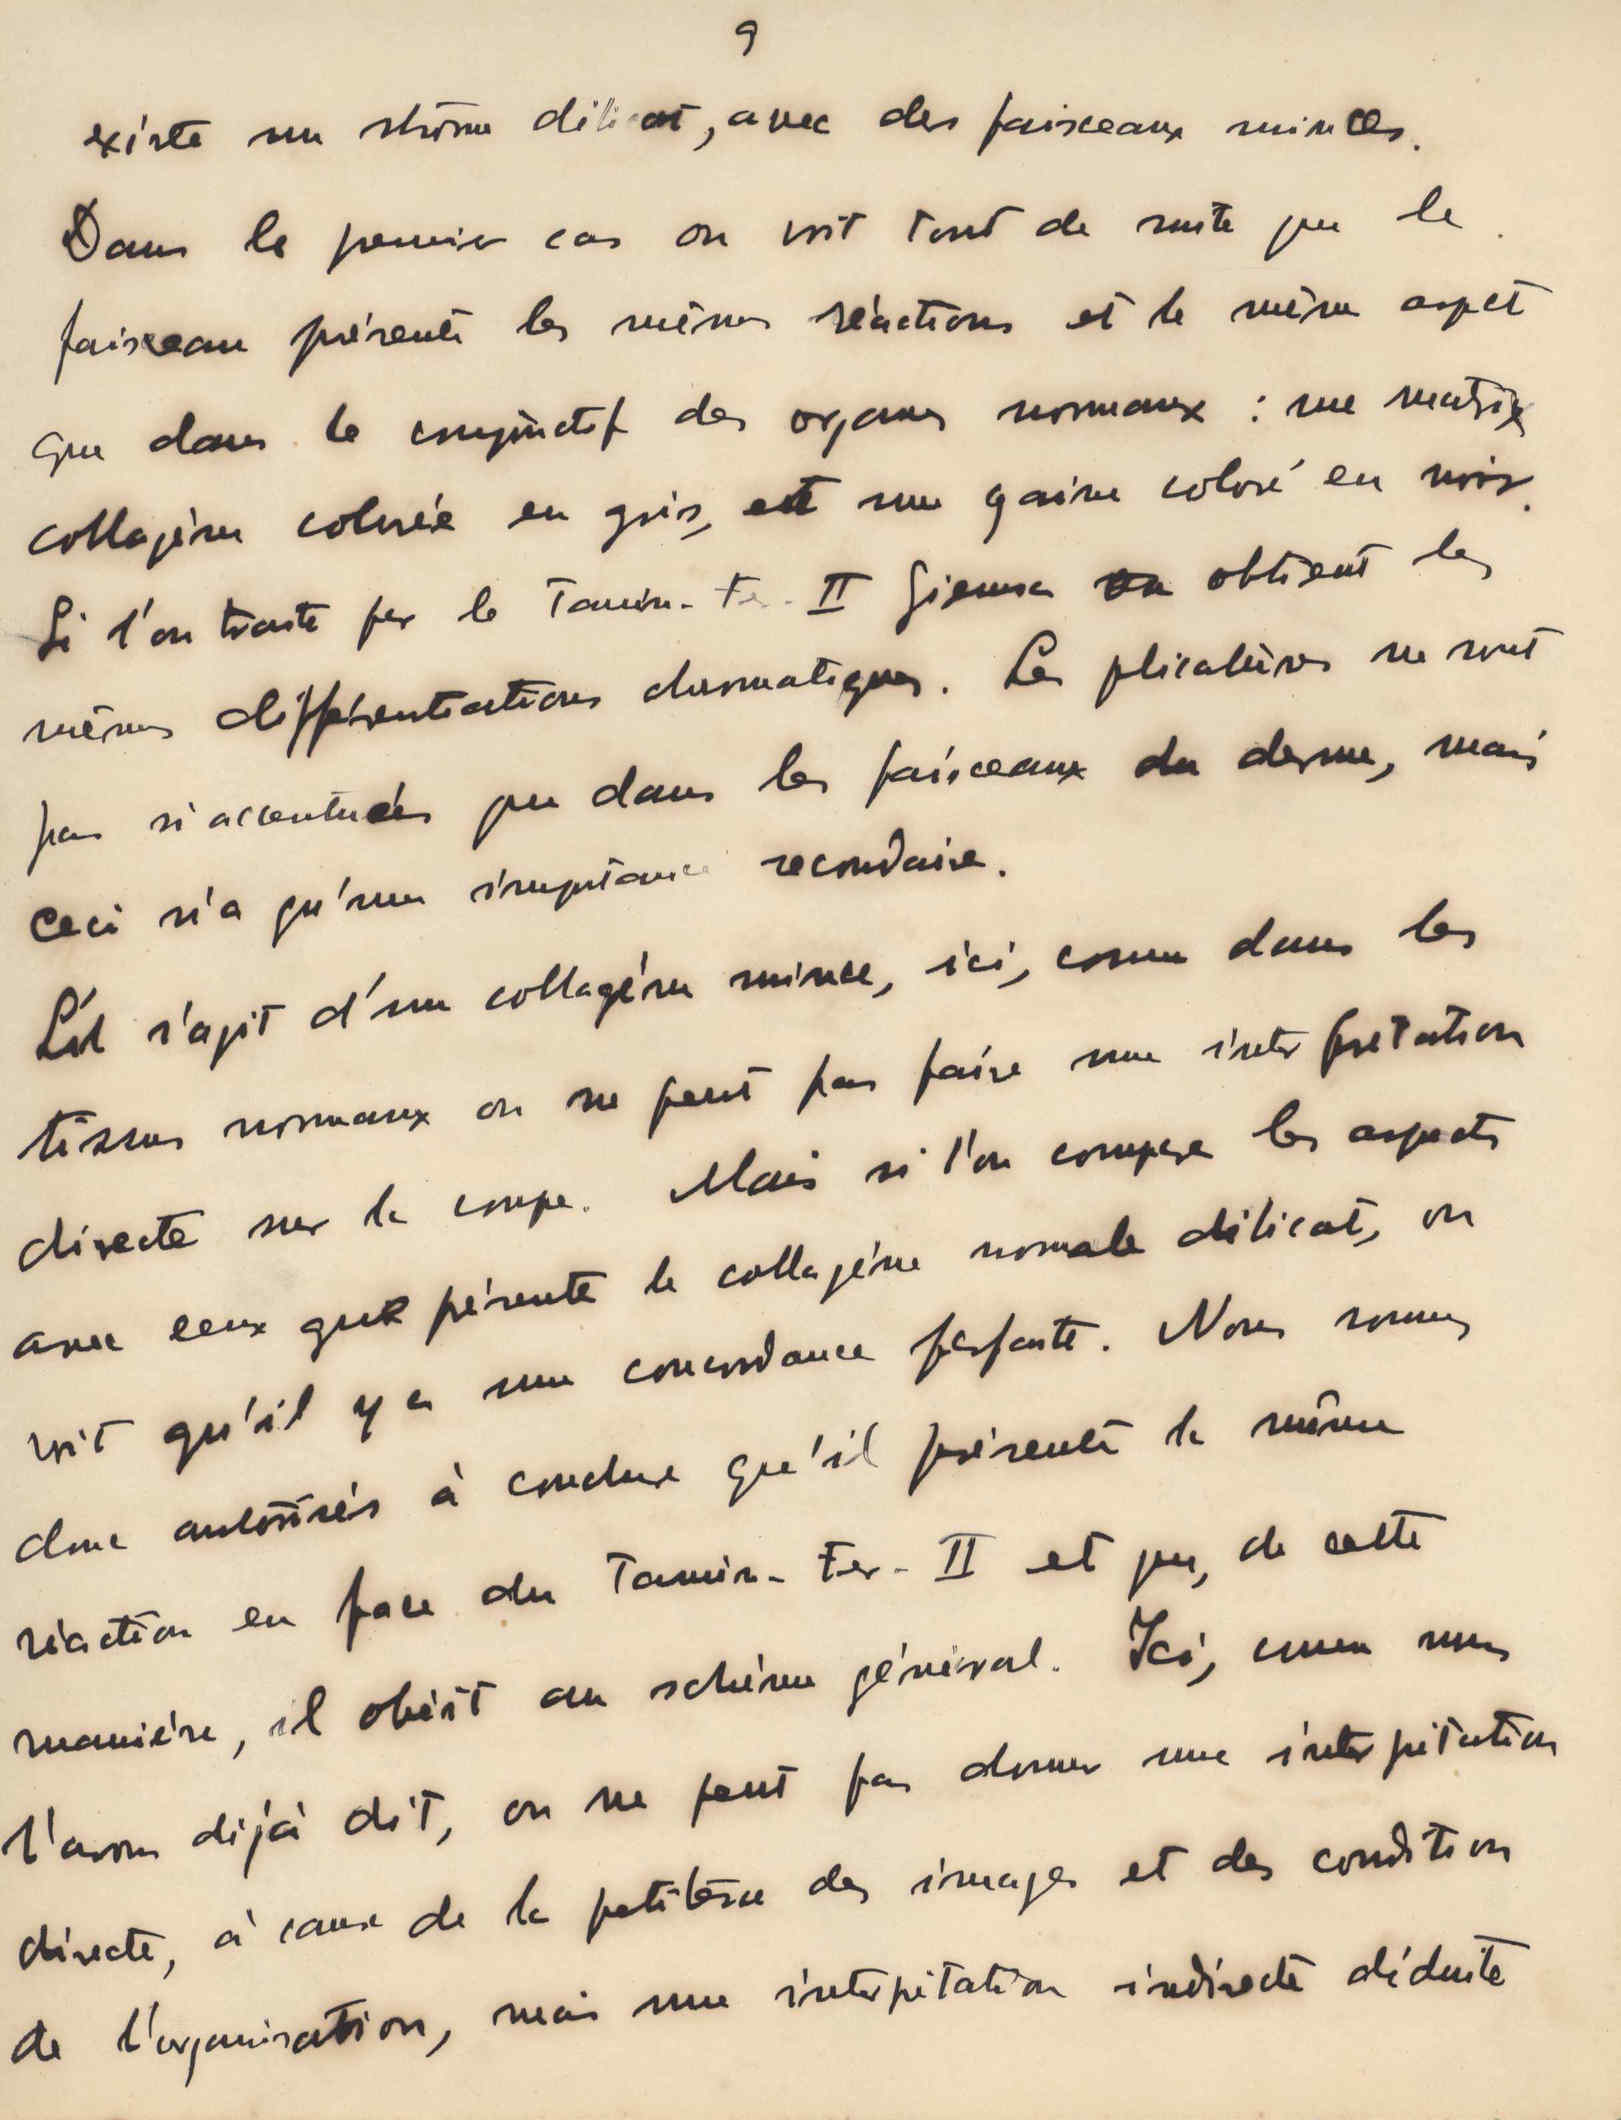 9
existe un strôma délicat, avec des faisceaux minces.
Dans le premier cas on voit tout de suite que le
faisceau présente les mêmes réactions et le même aspect
que dans le conjonctif des organes normaux : une matrix
collagène colorée en gris, et une gaine coloré en noir.
Si l'on traite par le Tannin-Fer-II Giemsa on obtient les
mêmes différentiations chromatiques. Les plicatures ne sont
pas si accentuées que dans les faisceaux du derme, mais
ceci n'a qu'une importance secondaire.
S'il s'agit d'un collagène mince, ici, comme dans les
tissus normaux on ne peut pas faire une interprétation
directe sur la coupe. Mais si l'on compare les aspects
avec ceux que présente le collagène normale délicat, on
voit qu'il y a une concordance parfaite. Nous sommes
donc autorisés à conclure qu'il présente la même
réaction en face du Tannin-Fer-II et que, de cette
manière, il obéit au schème général. Ici, comme nous
l'avons déjà dit, on ne peut pas donner une interprétation
directe, à cause de la petitesse des images et des condition
de l'organisation, mais une interprétation indirecte déduite